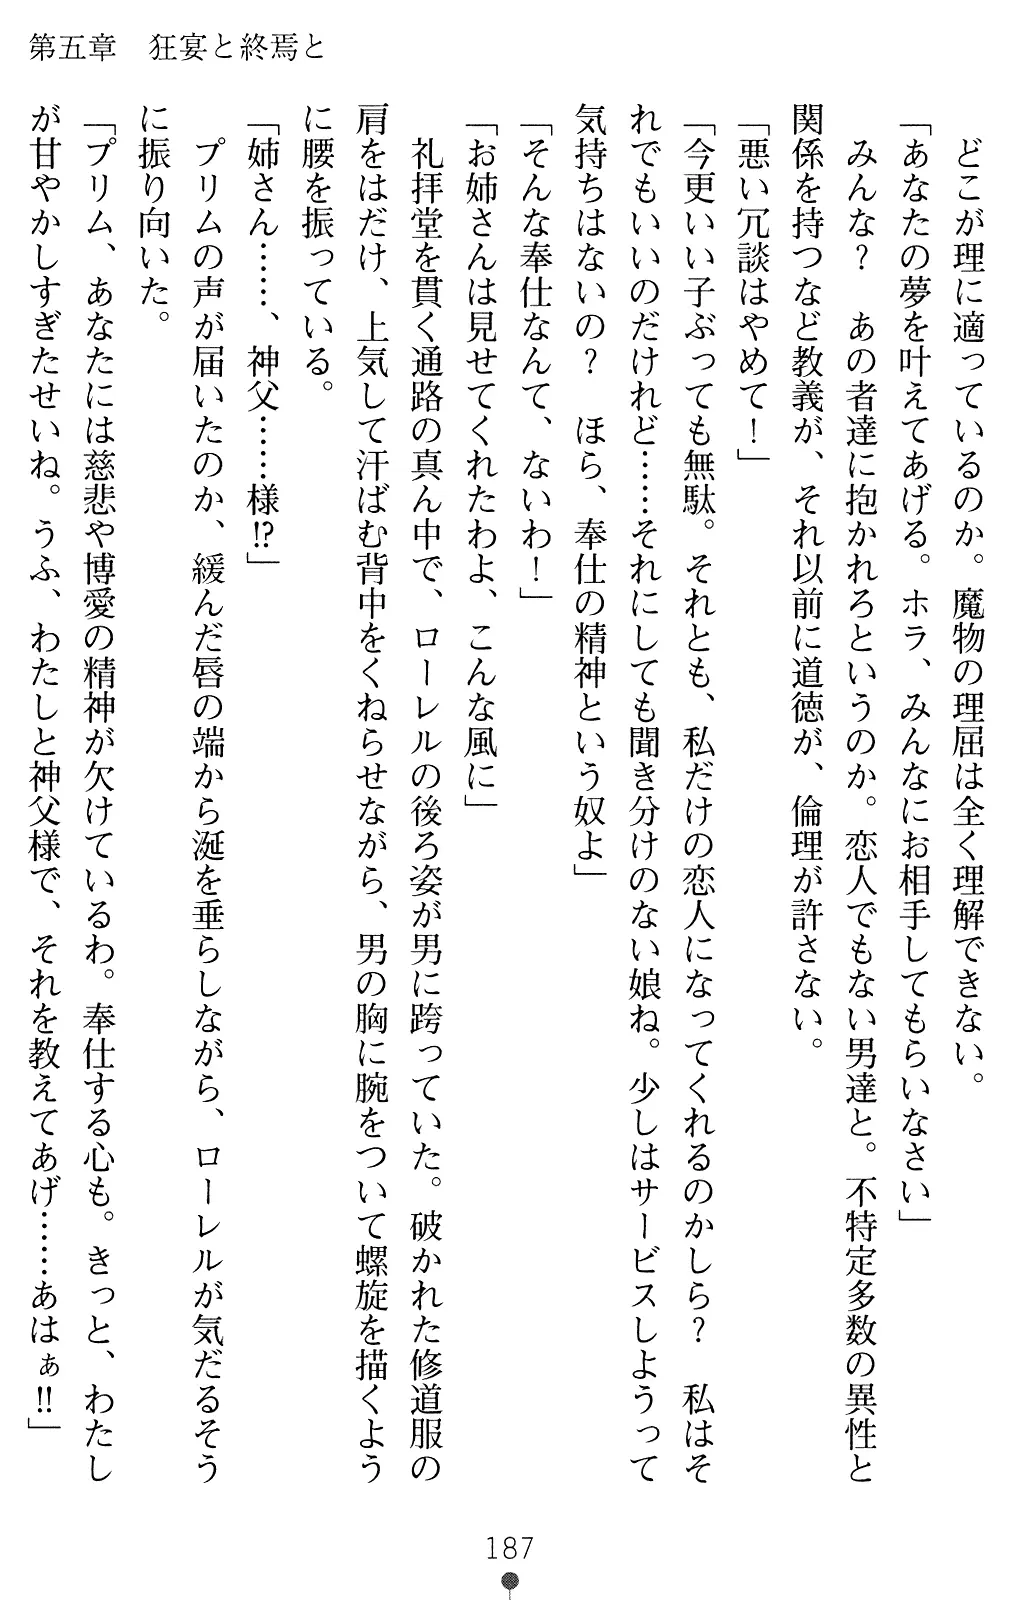 第五章　狂宴と終焉と
　どこが理に適っているのか。魔物の理屈は全く理解できない。
「あなたの夢を叶えてあげる。ホラ、みんなにお相手してもらいなさい」
　みんな？　あの者達に抱かれろというのか。恋人でもない男達と。不特定多数の異性と
関係を持つなど教義が、それ以前に道徳が、倫理が許さない。
「悪い冗談はやめて！」
「今更いい子ぶっても無駄。それとも、私だけの恋人になってくれるのかしら？　私はそ
れでもいいのだけれど……それにしても聞き分けのない娘ね。少しはサービスしようって
気持ちはないの？　ほら、奉仕の精神という奴よ」
「そんな奉仕なんて、ないわ！」
「お姉さんは見せてくれたわよ、こんな風に」
　礼拝堂を貫く通路の真ん中で、ローレルの後ろ姿が男に跨っていた。破かれた修道服の
肩をはだけ、上気して汗ばむ背中をくねらせながら、男の胸に腕をついて螺旋を描くよう
に腰を振っている。
「姉さん……、神父……様!?」
　プリムの声が届いたのか、緩んだ唇の端から涎を垂らしながら、ローレルが気だるそう
に振り向いた。
「プリム、あなたには慈悲や博愛の精神が欠けているわ。奉仕する心も。きっと、わたし
が甘やかしすぎたせいね。うふ、わたしと神父様で、それを教えてあげ……あはぁ!!」
187